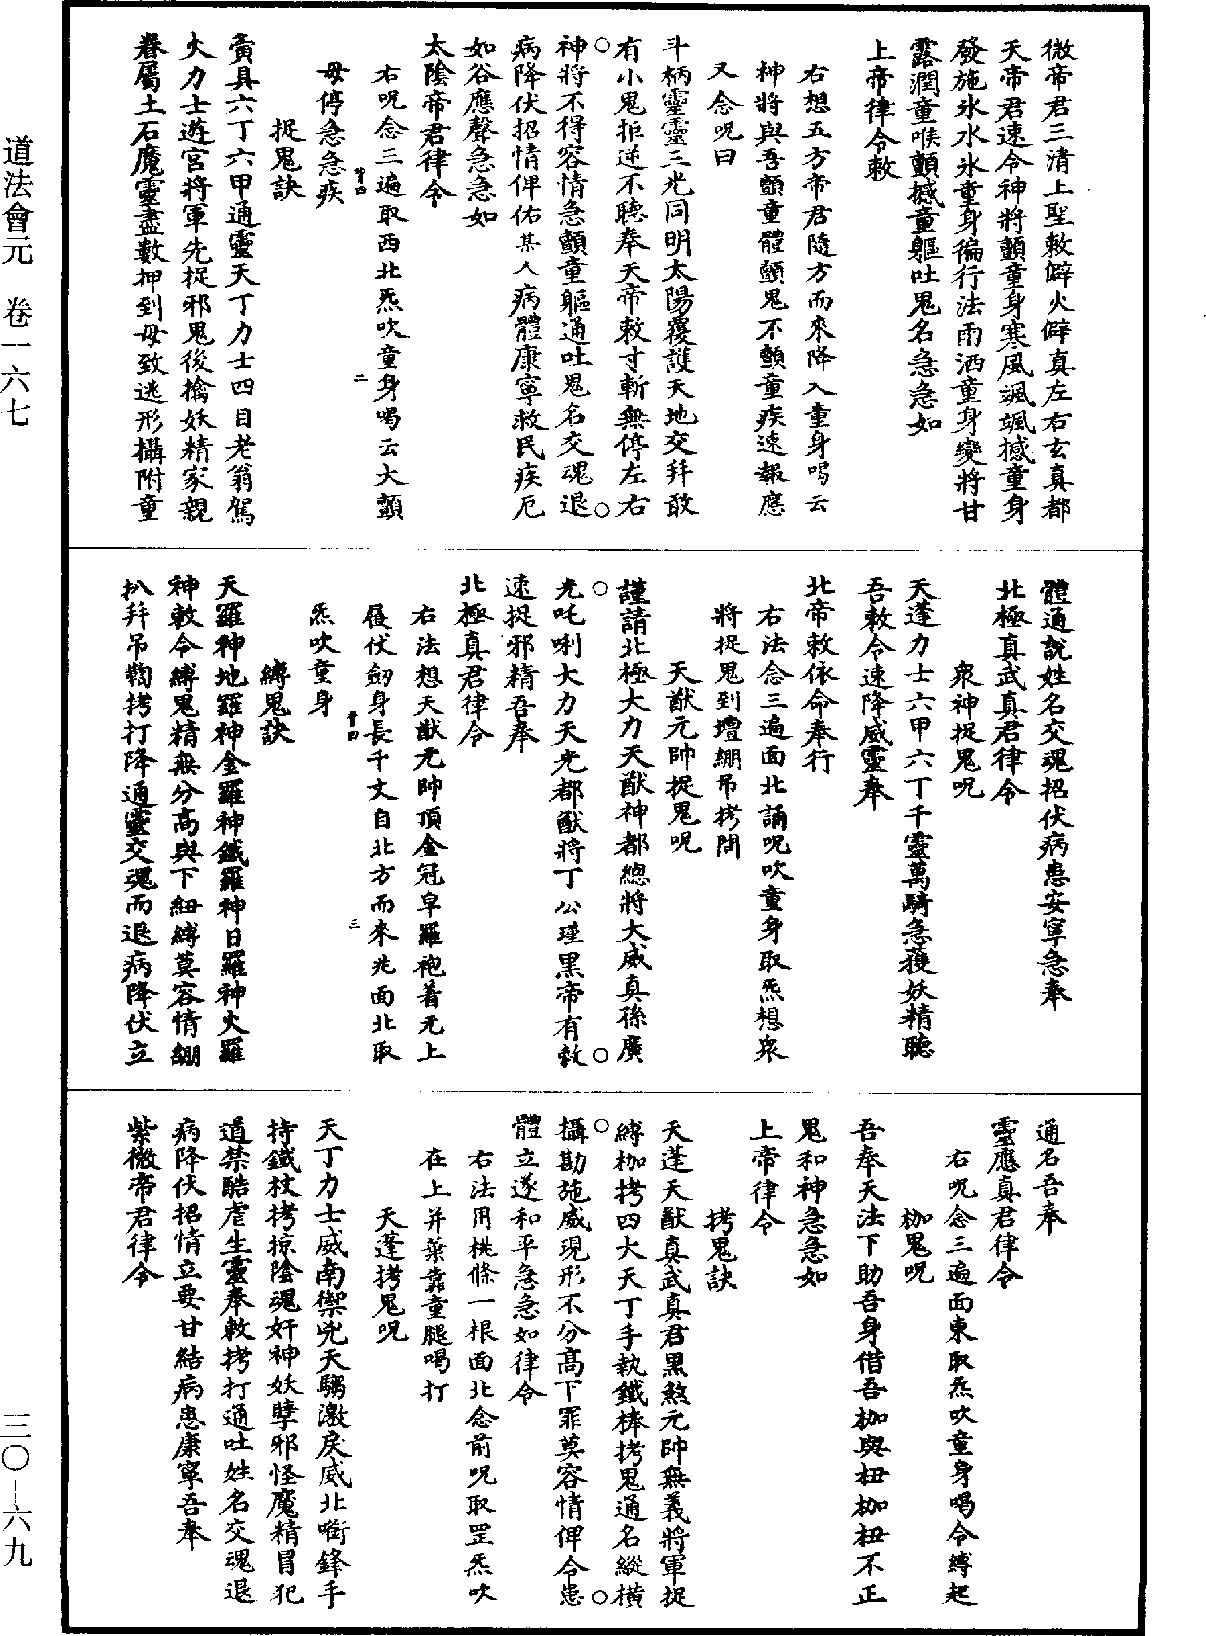 微帝君三清上聖敕僻火僻真左右玄真都
天帝君速令神將顫童身寒風颯颯撼童身
發施氷水氷童身徧行法雨洒童身變將甘
露潤童喉顫撼童軀吐鬼名急急如
上帝律令敕
右想五方帝君隨方而來降入童身喝云
神將與吾顫童體顫鬼不顫童疾速報應
又念呪曰
斗柄靈靈三光同明太陽覆護天地交拜敢
有小鬼拒逆不聽奉天帝敕寸斬無停左右
神將不得容情急顫童軀通吐鬼名交魂退
病降伏招情俾佑某人病體康寧救民疾厄
如谷應聲急急如
太陰帝君律令
右呪念三遍取西北炁吹童身喝云大顫
毋停急急疾
捉鬼訣
賫具六丁六甲通靈天丁力士四目老翁駕
火力士遊宮將軍先捉邪鬼後擒妖精家親
眷屬土石魔靈盡數押到毋致逃形攝附童
體通說姓名交魂招伏病患安寧急奉
北極真武真君律令
衆神捉鬼呪
天蓬力士六甲六丁千靈萬騎急獲妖精聽
吾敕令速降威靈奉
北帝敕依命奉行
右法念三遍面北誦呪吹童身取炁想衆
將捉鬼到壇綳吊拷問
天猷元帥捉鬼呪
謹請北極大力天猷神都總將大威真孫廣
光吒唎大力天光都猷將丁公瑾黑帝有敕
速捉邪精吾奉
北極真君律令
右法想天猷元帥頂金冠皁羅袍着元上
履伏劒身長千丈自北方而來兆面北取
炁吹童身
縛鬼訣
天羅神地羅神金羅神鐵羅神日羅神火羅
神敕令縛鬼精無分高與下紐縛莫容情綳
扒拜吊鞫拷打降通靈交魂而退病降伏立
通名吾奉
靈應真君律令
右呪念三遍面東取炁吹童身喝令縛起
枷鬼呪
吾奉天法下助吾身借吾枷與杻枷杻不正
鬼和神急急如
上帝律令
拷鬼訣
天蓬天猷真武真君黑煞元帥無義將軍捉
縛枷拷四大天丁手執鐵棒拷鬼通名縱橫
攝勘施威現形不分高下罪莫容情俾令患
體立遂和平急急如律令
右法用桃條一根面北念前呪取罡炁吹
在上并藥靠童腿喝打
天蓬拷鬼呪
天丁力士威南禦兇天騶激戾威北嚙鋒手
持鐵杖拷掠陰魂奸神妖孽邪怪魔精冒犯
道禁酷虐生靈奉敕拷打通吐姓名交魂退
病降伏招情立要甘結病患康寧吾奉
紫微帝君律令
道法會元　卷一六七
三〇—六九